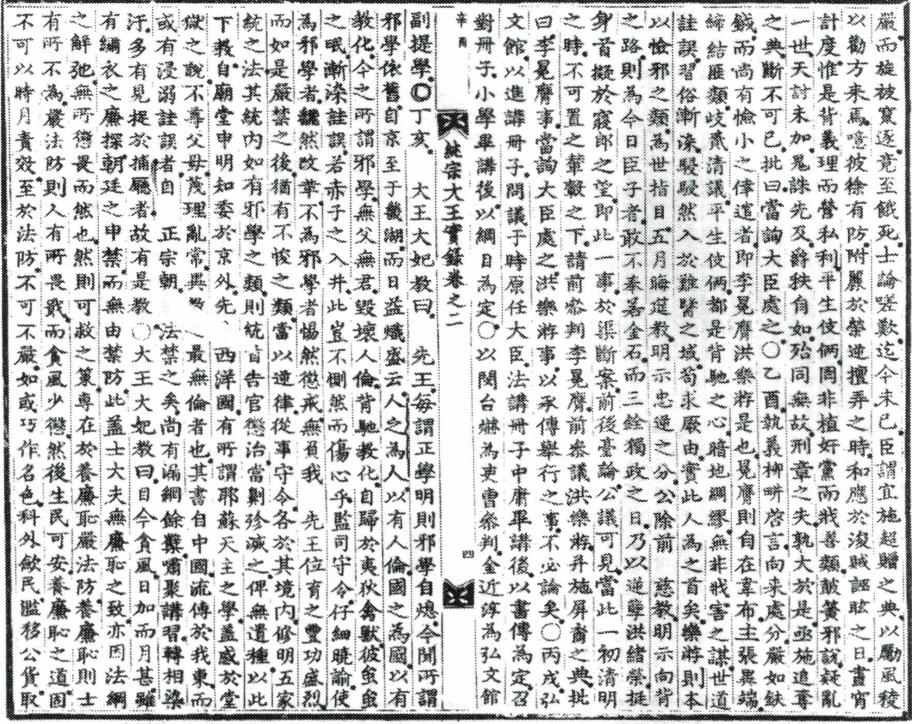 嚴而旋被竄逐竟至餓死士論嗟歎迄今未已臣謂宜施超贈之典以勵風稜
以勸方來焉噫彼徐有防附麗於榮逆擅弄之時和應於浚賊誑眩之日晝宵
計度惟是背義理而營私利平生伎倆罔非植奸黨而戕善類皷簧邪說疑亂
一世天討未加鬼誅先及爵秩自如殆同無故刑章之失孰大於是亟施追奪
之典斷不可已批曰當詢大臣處之○乙酉執義柳畊啓言向來處分嚴如鈇
鉞而尚有憸小之倖逭者即李冕膺洪樂游是也冕膺則自在韋布主張異端
締結匪類歧貳清議平生伎倆都是背馳之心暗地綢繆無非戕害之謀世道
詿誤習俗漸染駸駸然入於難醫之域苟求厥由實此人為之首矣樂游則本
以憸邪之類為世指目五月晦筵教明示忠逆之分公除前 慈教明示向背
之路則為今日臣子者敢不奉若金石而三銓獨政之日乃以逆孽洪緒榮挺
身首擬於寢郎之望即此一事於渠斷案前後臺論公議可見當此一初清明
之時不可置之輦轂之下請前參判李冕膺前參議洪樂游并施屏裔之典批
曰李冕膺事當詢大臣處之洪樂游事以承傳舉行之事不必論矣○丙戌弘
文館以進講冊子問議于時原任大臣法講冊子中庸畢講後以書傳為定召
對冊子小學畢講後以綱目為定○以閔台爀為吏曹參判金近淳為弘文館
辛酉
純宗大王實錄卷之二
四
副提學○丁亥 大王大妃教曰 先王每謂正學明則邪學自熄今聞所謂
邪學依舊自京至于畿湖而日益熾盛云人之為人以有人倫國之為國以有
教化今之所謂邪學無父無君毀壞人倫背馳教化自歸於夷狄禽獸彼蚩蚩
之氓漸染詿誤若赤子之入井此豈不惻然而傷心乎監司守令仔細曉諭使
為邪學者飜然改革不為邪學者惕然懲戒無負我 先王位育之豐功盛烈
而如是嚴禁之後猶有不悛之類當以逆律從事守令各於其境內修明五家
統之法其統內如有邪學之類則統首告官懲治當劓殄滅之俾無遺種以此
下教自廟堂申明知委於京外先 西洋國有所謂耶蘇天主之學蓋惑於堂
獄之說不尊父母蔑理亂常異 最無倫者也其書自中國流傳於我東而
或有浸溺詿誤者自 正宗朝 法禁之矣尚有漏網餘孽嘯聚講習轉相染
汙多有見捉於捕廳者故有是教○大王大妃教曰目今貪風日加而月甚雖
有繡衣之廉探朝廷之申禁而無由禁防此蓋士大夫無廉恥之致亦因法綱
之解弛無所懲畏而然也然則可救之策專在於養廉恥嚴法防養廉恥則士
有所不為嚴法防則人有所畏戢而貪風少懲然後生民可安養廉恥之道固
不可以時月責效至於法防不可不嚴如或巧作名色科外斂民濫移公貨取